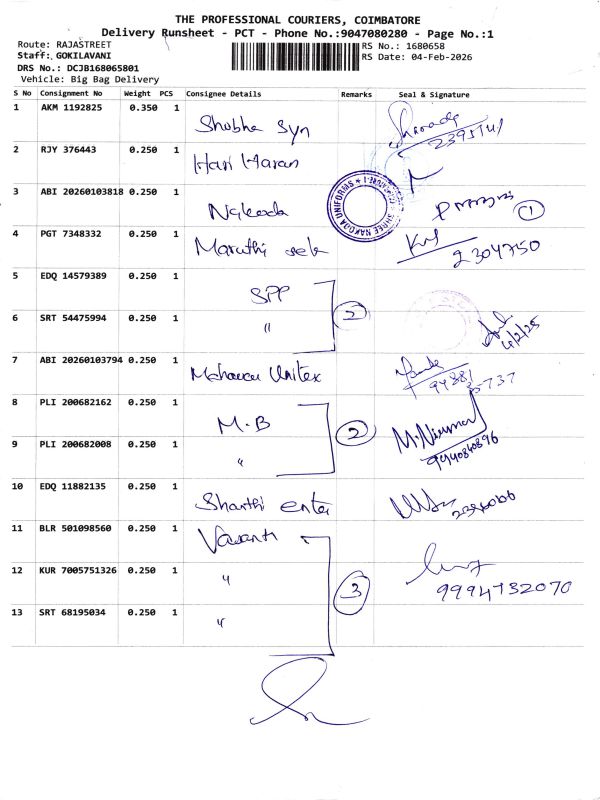 THE PROFESSIONAL COURIERS, COIMBATORE
Delivery Runsheet - PCT - Phone No.:9047080280 - Page No.:1
Route: RAJASTREET
RS No.: 1680658
Staff: GOKILAVANI
RS Date: 04-Feb-2026
DRS No.: DCJB168065801
Vehicle: Big Bag Delivery
S No Consignment No Weight PCS Consignee Details Remarks Seal & Signature
1 AKM 1192825 0.350 1 Shobha Syn
2 RJY 376443 0.250 1 Hari Haran
3 ABI 20260103818 0.250 1 Nakoda 1
SHREE NAKODA UNIFORMS
4 PGT 7348332 0.250 1 Maruthi 2304750
5 EDQ 14579389 0.250 1 SPP 2
6 SRT 54475994 0.250 1 " 4/2/25
7 ABI 20260103794 0.250 1 Unitex
8 PLI 200682162 0.250 1 M.B 2
9 PLI 200682008 0.250 1 " 9440840896
10 EDQ 11882135 0.250 1 Shanthi enter
11 BLR 501098560 0.250 1
12 KUR 7005751326 0.250 1 " 3 9994732070
13 SRT 68195034 0.250 1 "